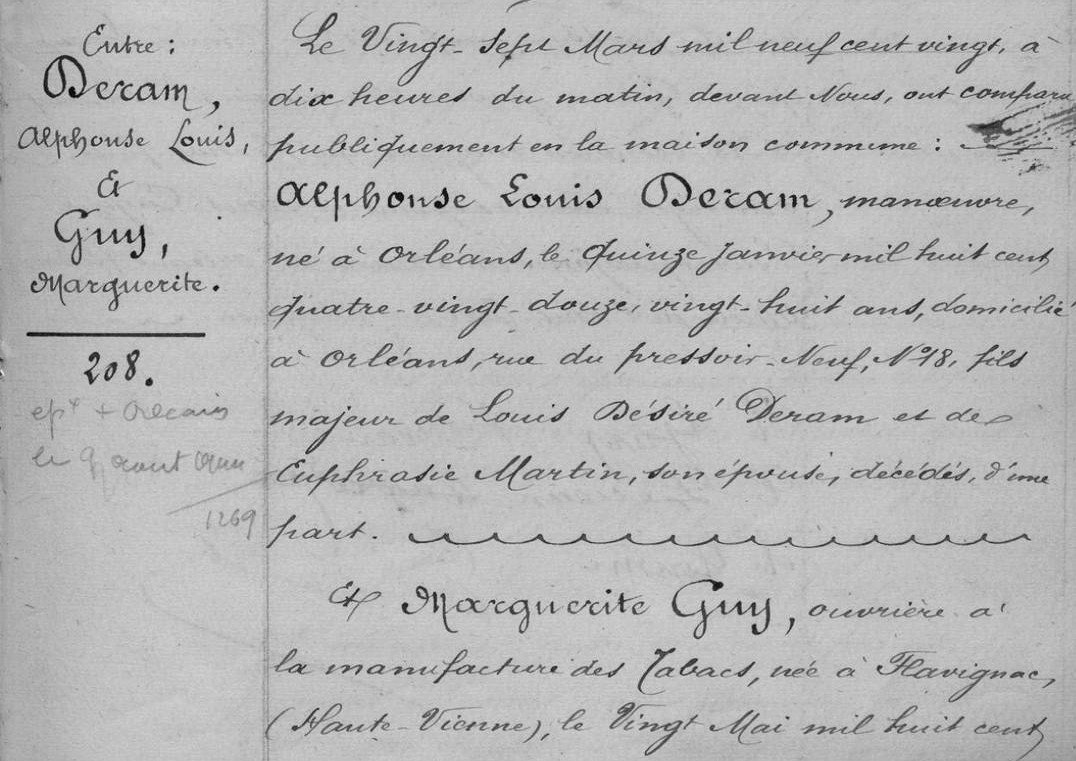 Entre :
Deram,
Alphonse Louis,
Et
Guy,
Marguerite.
208.
le 9 aout
1269
Le Vingt-Sept Mars mil neuf cent vingt, à
dix heures du matin, devant Nous, ont comparu
publiquement en la maison commune :
Alphonse Louis Deram, manœuvre,
né à Orléans, le Quinze Janvier mil huit cent
quatre-vingt-douze, vingt-huit ans, domicilié
à Orléans, rue du pressoir-Neuf, No 18, fils
majeur de Louis Désiré Deram et de
Euphrasie Martin, son épouse, décédés, d'une
part.
Et Marguerite Guy, ouvrière à
la manufacture des Tabacs, née à Flavignac,
(Haute-Vienne), le Vingt Mai mil huit cent